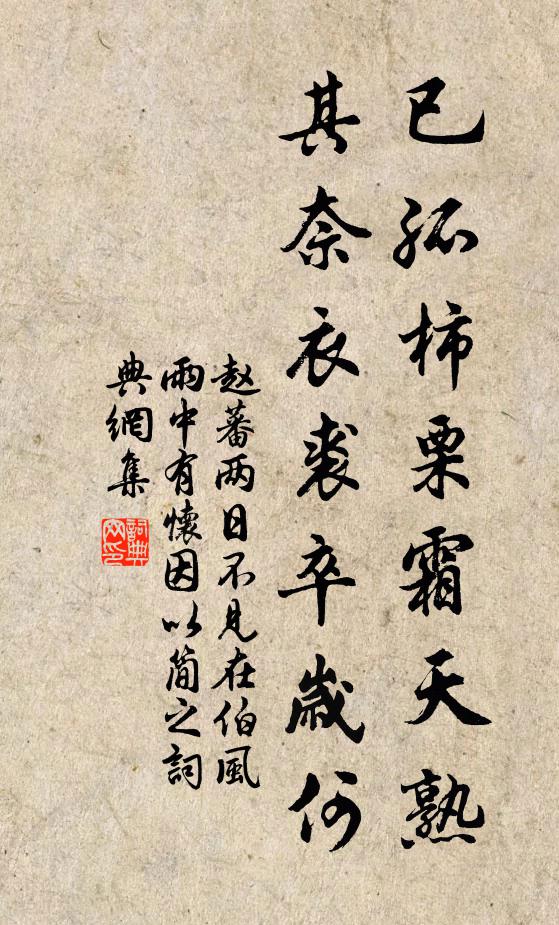 已孤柿栗霜天熟
其奈衣裘卒歲何
赵蕃两日不見在伯風
雨中有懷因以簡之詞
典網集
詞典
网印